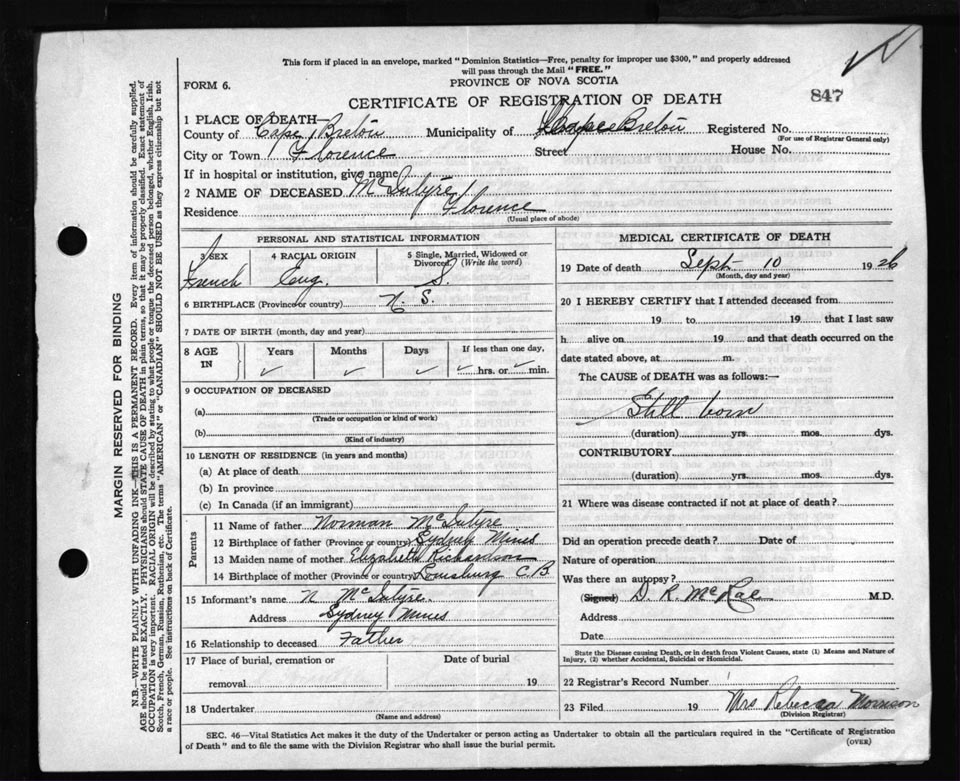 This form if placed in an envelope, marked "Dominion Statistics—Free, penalty for improper use $300," and properly addressed
will pass through the Mail "FREE."
FORM 6.
PROVINCE OF NOVA SCOTIA
CERTIFICATE OF REGISTRATION OF DEATH
847
1 PLACE OF DEATH—
County of Cape Breton Municipality of Cape Breton Registered No.
(For use of Registrar General only)
City or Town Florence Street House No.
If in hospital or institution, give name
2 NAME OF DECEASED McIntyre
Residence Florence
(Usual place of abode)
PERSONAL AND STATISTICAL INFORMATION
3 SEX 4 RACIAL ORIGIN 5 Single, Married, Widowed or Divorced (Write the word)
Eng. S.
6 BIRTHPLACE (Province or country) N. S.
7 DATE OF BIRTH (month, day and year)
8 AGE IN Years Months Days If less than one day,
✓ ✓ ✓ ✓ hrs. or ✓ min.
9 OCCUPATION OF DECEASED
(a)
(Trade or occupation or kind of work)
(b)
(Kind of industry)
10 LENGTH OF RESIDENCE (in years and months)
(a) At place of death
(b) In province
(c) In Canada (if an immigrant)
Parents
11 Name of father Norman McIntyre
12 Birthplace of father (Province or country) Sydney Mines
13 Maiden name of mother Elizabeth Richardson
14 Birthplace of mother (Province or country) Louisburg C. B
15 Informant's name N McIntyre.
Address Sydney Mines
16 Relationship to deceased Father
17 Place of burial, cremation or Date of burial
removal 19
18 Undertaker
(Name and address)
MEDICAL CERTIFICATE OF DEATH
19 Date of death Sept 10 1926
(Month, day and year)
20 I HEREBY CERTIFY that I attended deceased from
19 to 19 that I last saw
h alive on 19 and that death occurred on the
date stated above, at m.
The CAUSE of DEATH was as follows:—
Still born
(duration) yrs. mos. dys.
CONTRIBUTORY
(duration) yrs. mos. dys.
21 Where was disease contracted if not at place of death?
Did an operation precede death? Date of
Nature of operation
Was there an autopsy?
(Signed) D. R. McRae M.D.
Address
Date
State the Disease causing Death, or in death from Violent Causes, state (1) Means and Nature of
Injury, (2) whether Accidental, Suicidal or Homicidal.
22 Registrar's Record Number
23 Filed 19 Mrs Rebecca Morrison
(Division Registrar)
SEC. 46—Vital Statistics Act makes it the duty of the Undertaker or person acting as Undertaker to obtain all the particulars required in the "Certificate of Registration
of Death" and to file the same with the Division Registrar who shall issue the burial permit.
(OVER)
MARGIN RESERVED FOR BINDING
N.B.—WRITE PLAINLY WITH UNFADING INK—THIS IS A PERMANENT RECORD. Every item of information should be carefully supplied.
AGE should be stated EXACTLY. PHYSICIANS should STATE CAUSE OF DEATH in plain terms, so that it may be properly classified. Exact statement of
OCCUPATION is very important. RACIAL ORIGIN will be described by stating to what people or tongue the deceased person belonged, whether English, Irish,
Scotch, French, German, Russian, Ruthenian, etc. The terms "AMERICAN" or "CANADIAN" SHOULD NOT BE USED as they express citizenship but not
a race or people. See instructions on back of Certificate.